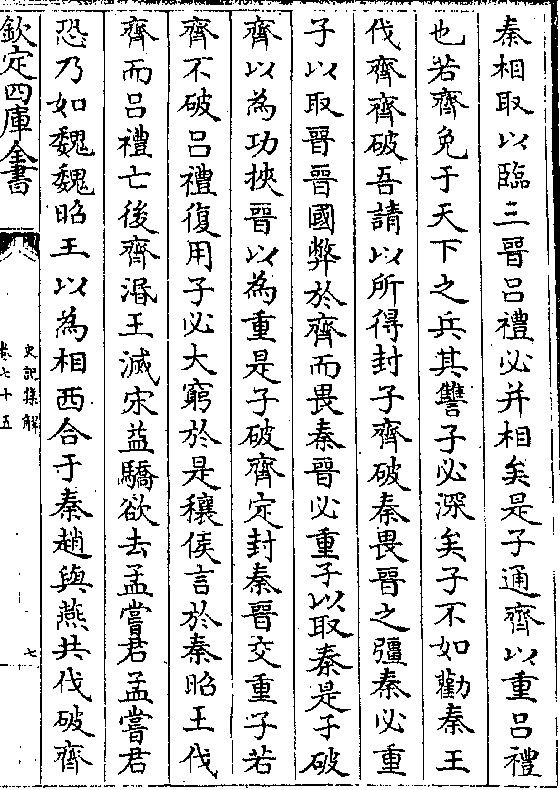 秦相取以臨三晉呂禮必并相矣是子通齊以重呂禮
也若齊免于天下之兵其讐子必深矣子不如勸秦王
伐齊齊破吾請以所得封子齊破秦畏晉之彊秦必重
子以取晉晉國弊於齊而畏秦晉必重子以取秦是子破
齊以為功挾晉以為重是子破齊定封秦晉交重子若
齊不破呂禮復用子必大窮於是穰侯言於秦昭王伐
齊而呂禮亡後齊湣王滅宋益驕欲去孟嘗君孟嘗君
恐乃如魏魏昭王以為相西合于秦趙與燕共伐破齊
欽定四庫全書
史記集解
卷七十五
七